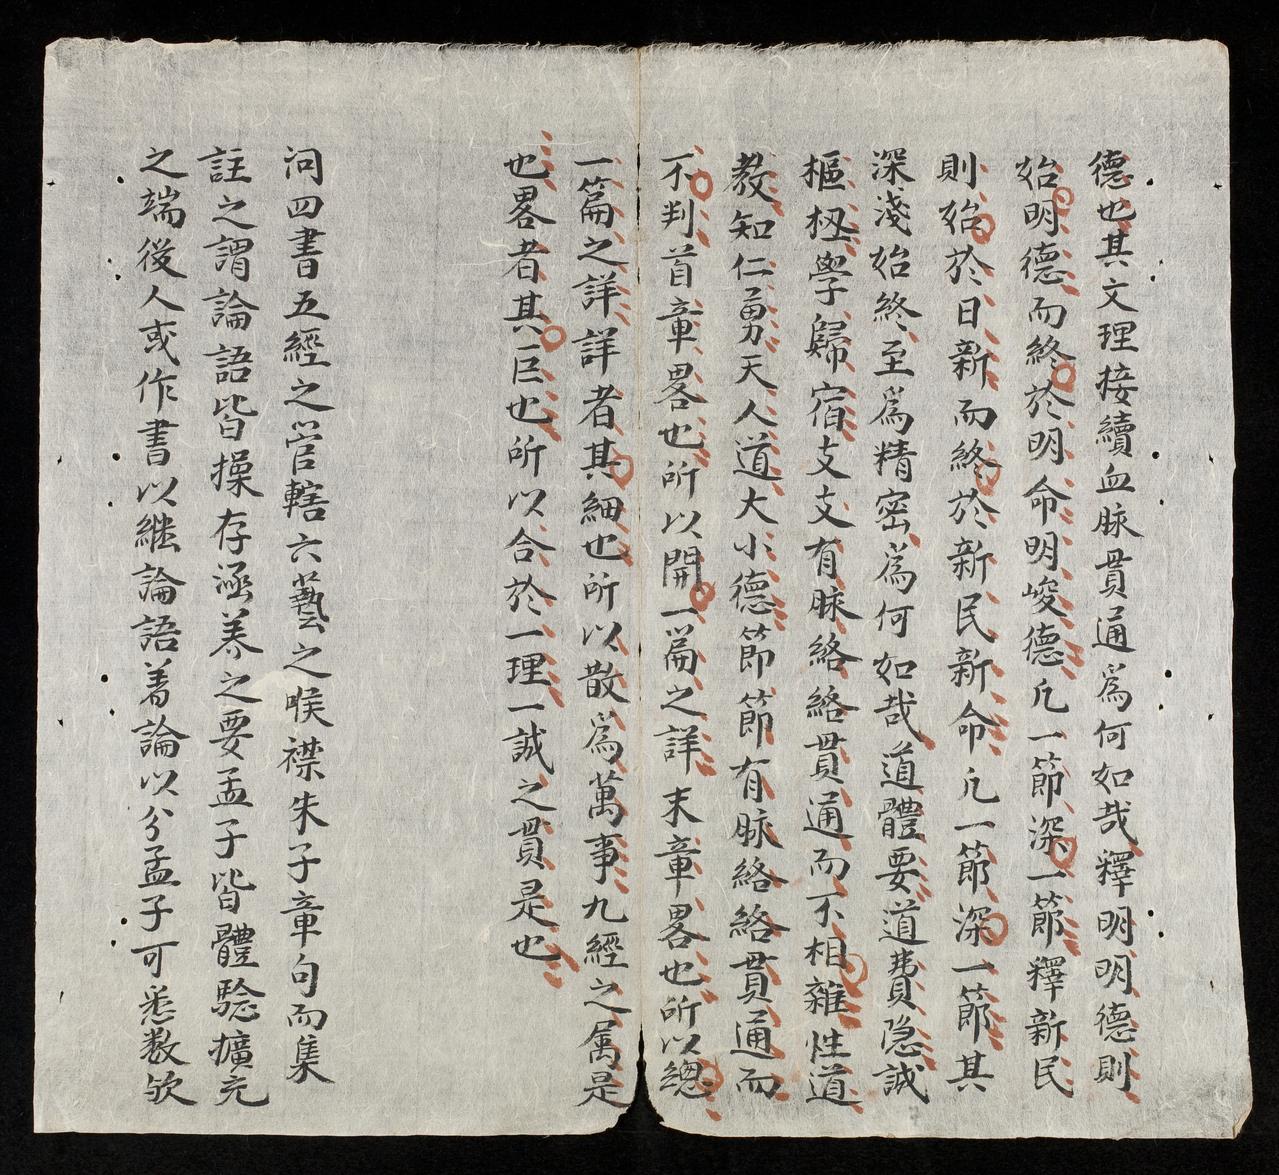 德也其文理接續血脉貫通爲何如哉釋明明德則
始明德而終於明命明峻德凢一節深一節釋新民
則始於日新而終於新民新命凢一節深一節其
深淺始終至爲精密爲何如哉道體要道費隐誠
樞極學歸宿支支有脉絡絡貫通而不相雜性道
教知仁勇天人道大小德節節有脉絡絡貫通而
不判首章畧也所以開一篇之詳末章畧也所以緫
一篇之詳詳者其細也所以散爲萬事九經之属是
也畧者其巨也所以合於一理一誠之貫是也
问四書五經之管轄六藝之喉襟朱子章句而集
註之謂論語皆操存涵养之要孟子皆體騐擴充
之端後人或作書以継論語著論以分孟子可悉数欤